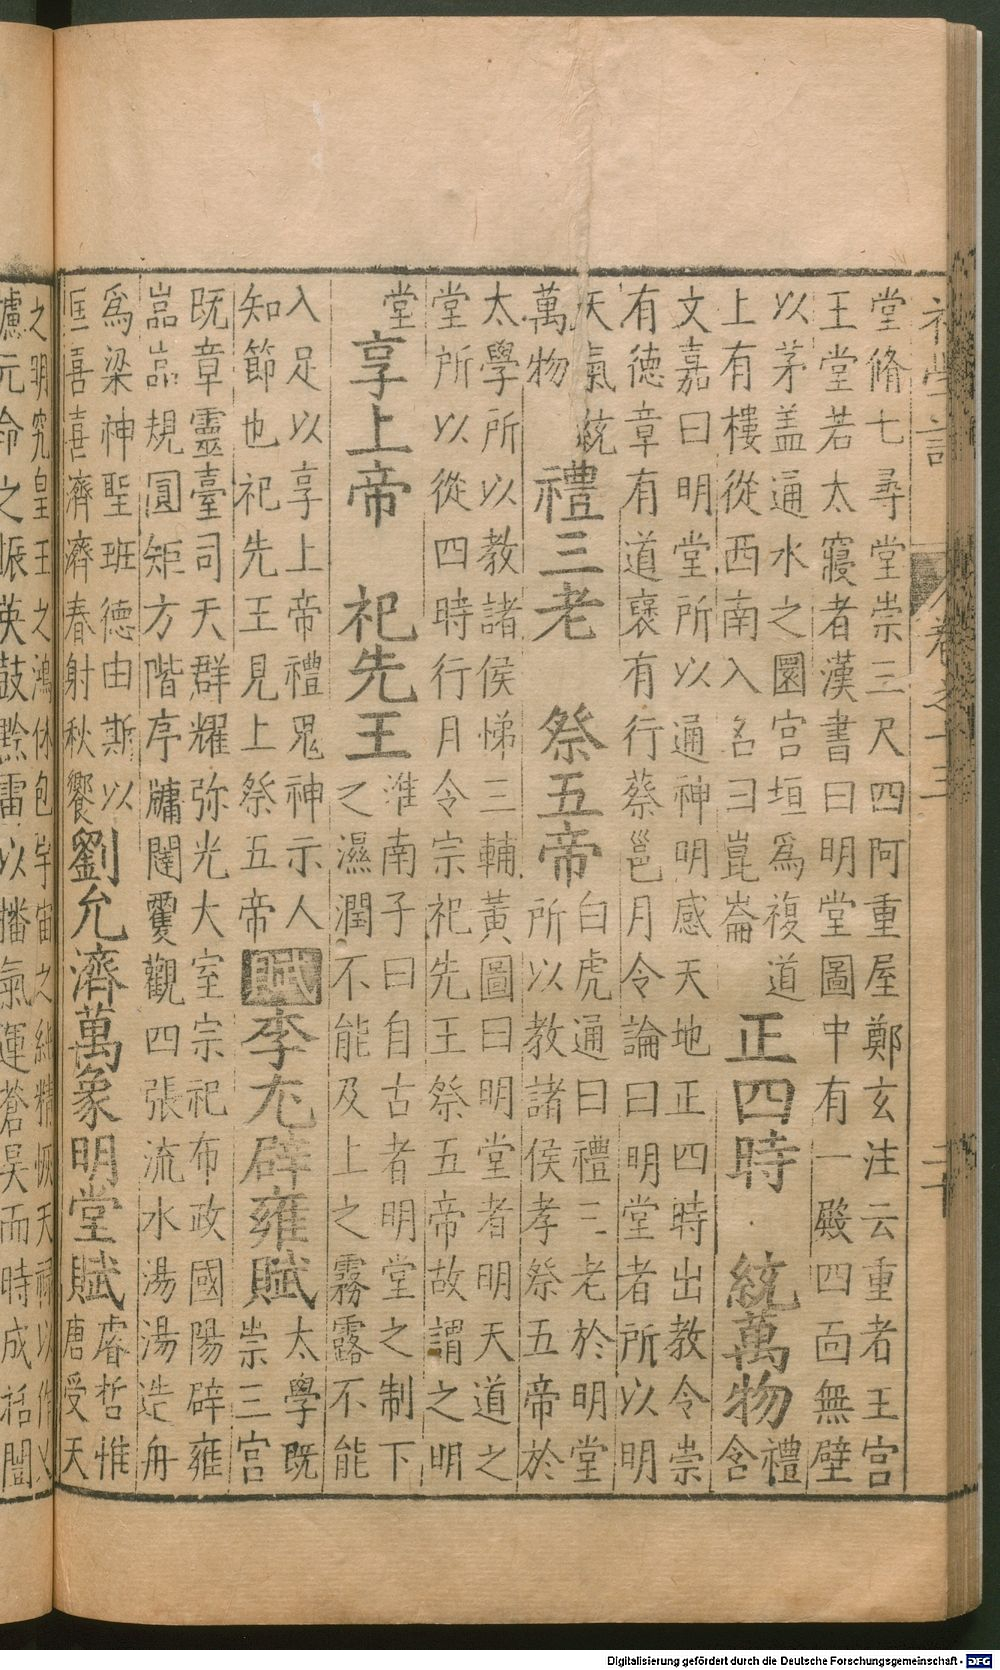 初學記 卷之十三 二十
堂脩七尋堂崇三尺四阿重屋鄭玄注云重者王宮
王堂若太寢者漢書曰明堂圖中有一殿四面無壁
以茅盖通水之圜宮垣爲複道
上有樓從西南入名曰崑崙
正四時 統萬物
禮
含
文嘉曰明堂所以通神明感天地正四時出教令崇
有德章有道襃有行蔡邕月令論曰明堂者所以明
天氣統
萬物
禮三老 祭五帝
白虎通曰禮三老於明堂
所以教諸侯孝祭五帝於
太學所以教諸侯悌三輔黃圖曰明堂者明天道之
堂所以從四時行月令宗祀先王祭五帝故謂之明
堂
享上帝 祀先王
淮南子曰自古者明堂之制下
之濕潤不能及上之霧露不能
入足以享上帝禮鬼神示人
知節也祀先王見上祭五帝
賦李尤辟雍賦
太學既
崇三宮
既章靈臺司天群耀弥光大室宗祀布政國陽辟雍
嵓嵓規圓矩方階序牖闥䨥觀四張流水湯湯造舟
爲梁神聖班德由斯以
匡喜喜濟濟春射秋饗
劉允濟萬象明堂賦
睿哲惟
唐受天
之明究皇王之鴻休包宇宙之純精恢天禄以作乂
慮元命之振英鼓黔雷以播氣運蒼昊而時成括闓
Digitalisierung gefördert durch die Deutsche Forschungsgemeinschaft - DFG